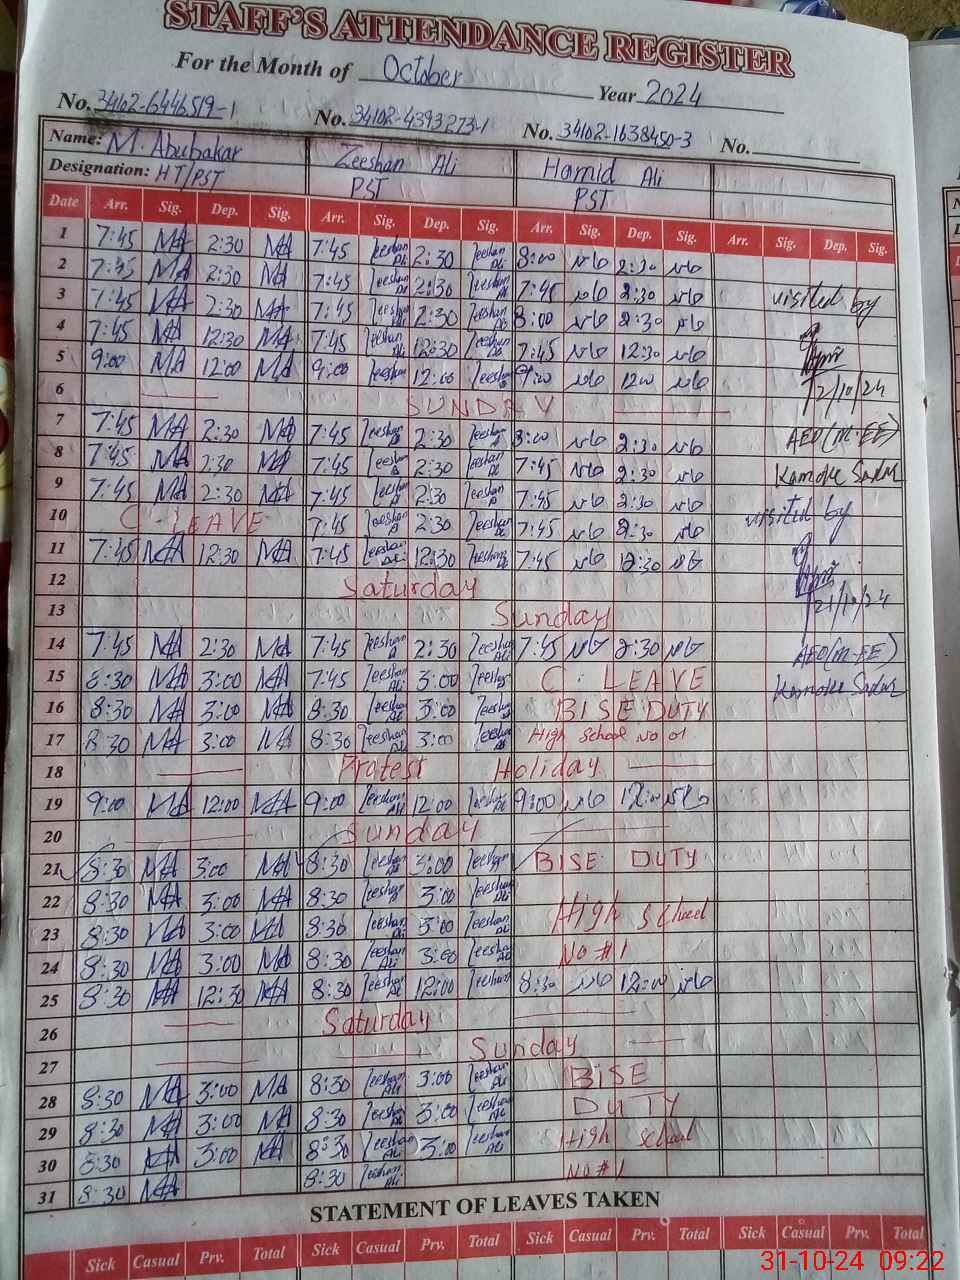 STAFF'S ATTENDANCE REGISTER
For the Month of October Year 2024
No. 3462-6446519-1 No. 34102-4393273-1 No. 34102-1638450-3 No.
Name: M. Abubakar Zeeshan Ali Hamid Ali
Designation: HT/PST PST PST
Date Arr. Sig. Dep. Sig. Arr. Sig. Dep. Sig. Arr. Sig. Dep. Sig. Arr. Sig. Dep. Sig.
1 7:45 MA 2:30 MA 7:45 Zeeshan Ali 2:30 Zeeshan Ali 8:00 2:30
2 7:45 MA 2:30 MA 7:45 Zeeshan Ali 2:30 Zeeshan Ali 7:45 2:30 visited by
3 7:45 MA 2:30 MA 7:45 Zeeshan Ali 2:30 Zeeshan Ali 8:00 2:30
4 7:45 MA 12:30 MA 7:45 Zeeshan Ali 12:30 Zeeshan Ali 7:45 12:30
5 9:00 MA 12:00 MA 9:00 Zeeshan 12:00 Zeeshan 9:00 12:00 12/10/24
6 SUNDAY
7 7:45 MA 2:30 MA 7:45 Zeeshan 2:30 Zeeshan 8:00 2:30 AEO(M-EE)
8 7:45 MA 2:30 MA 7:45 Zeeshan 2:30 Zeeshan 7:45 2:30 Kamoke Sadar
9 7:45 MA 2:30 MA 7:45 Zeeshan 2:30 Zeeshan 7:45 2:30 visited by
10 C. LEAVE 7:45 Zeeshan 2:30 Zeeshan 7:45 2:30
11 7:45 MA 12:30 MA 7:45 Zeeshan Ali 12:30 Zeeshan 7:45 12:30
12 Saturday 21/10/24
13 Sunday
14 7:45 MA 2:30 MA 7:45 Zeeshan 2:30 Zeeshan Ali 7:45 2:30 AEO(M-EE)
15 8:30 MA 3:00 MA 7:45 Zeeshan Ali 3:00 Zeeshan C. LEAVE Kamoke Sadar
16 8:30 MA 3:00 MA 8:30 Zeeshan Ali 3:00 Zeeshan BISE DUTY
17 8:30 MA 3:00 MA 8:30 Zeeshan Ali 3:00 Zeeshan High School No 01
18 Protest Holiday
19 9:00 MA 12:00 MA 9:00 Zeeshan Ali 12:00 Zeeshan 9:00 12:00
20 Sunday
21 8:30 MA 3:00 MA 8:30 Zeeshan 3:00 Zeeshan BISE DUTY
22 8:30 MA 3:00 MA 8:30 Zeeshan 3:00 Zeeshan High School
23 8:30 MA 3:00 MA 8:30 Zeeshan Ali 3:00 Zeeshan Ali
24 8:30 MA 3:00 MA 8:30 Zeeshan Ali 3:00 Zeeshan Ali No # 1
25 8:30 MA 12:30 MA 8:30 Zeeshan Ali 12:00 Zeeshan 8:30 12:00
26 Saturday
27 Sunday
28 8:30 MA 3:00 MA 8:30 Zeeshan Ali 3:00 Zeeshan Ali BISE
29 8:30 MA 3:00 MA 8:30 Zeeshan Ali 3:00 Zeeshan Ali DUTY
30 8:30 MA 3:00 MA 8:30 Zeeshan Ali 3:00 Zeeshan Ali High School
31 8:30 MA 8:30 Zeeshan Ali No # 1
STATEMENT OF LEAVES TAKEN
Sick Casual Prv. Total Sick Casual Prv. Total Sick Casual Prv. Total Sick Casual Prv. Total
31-10-24 09:22